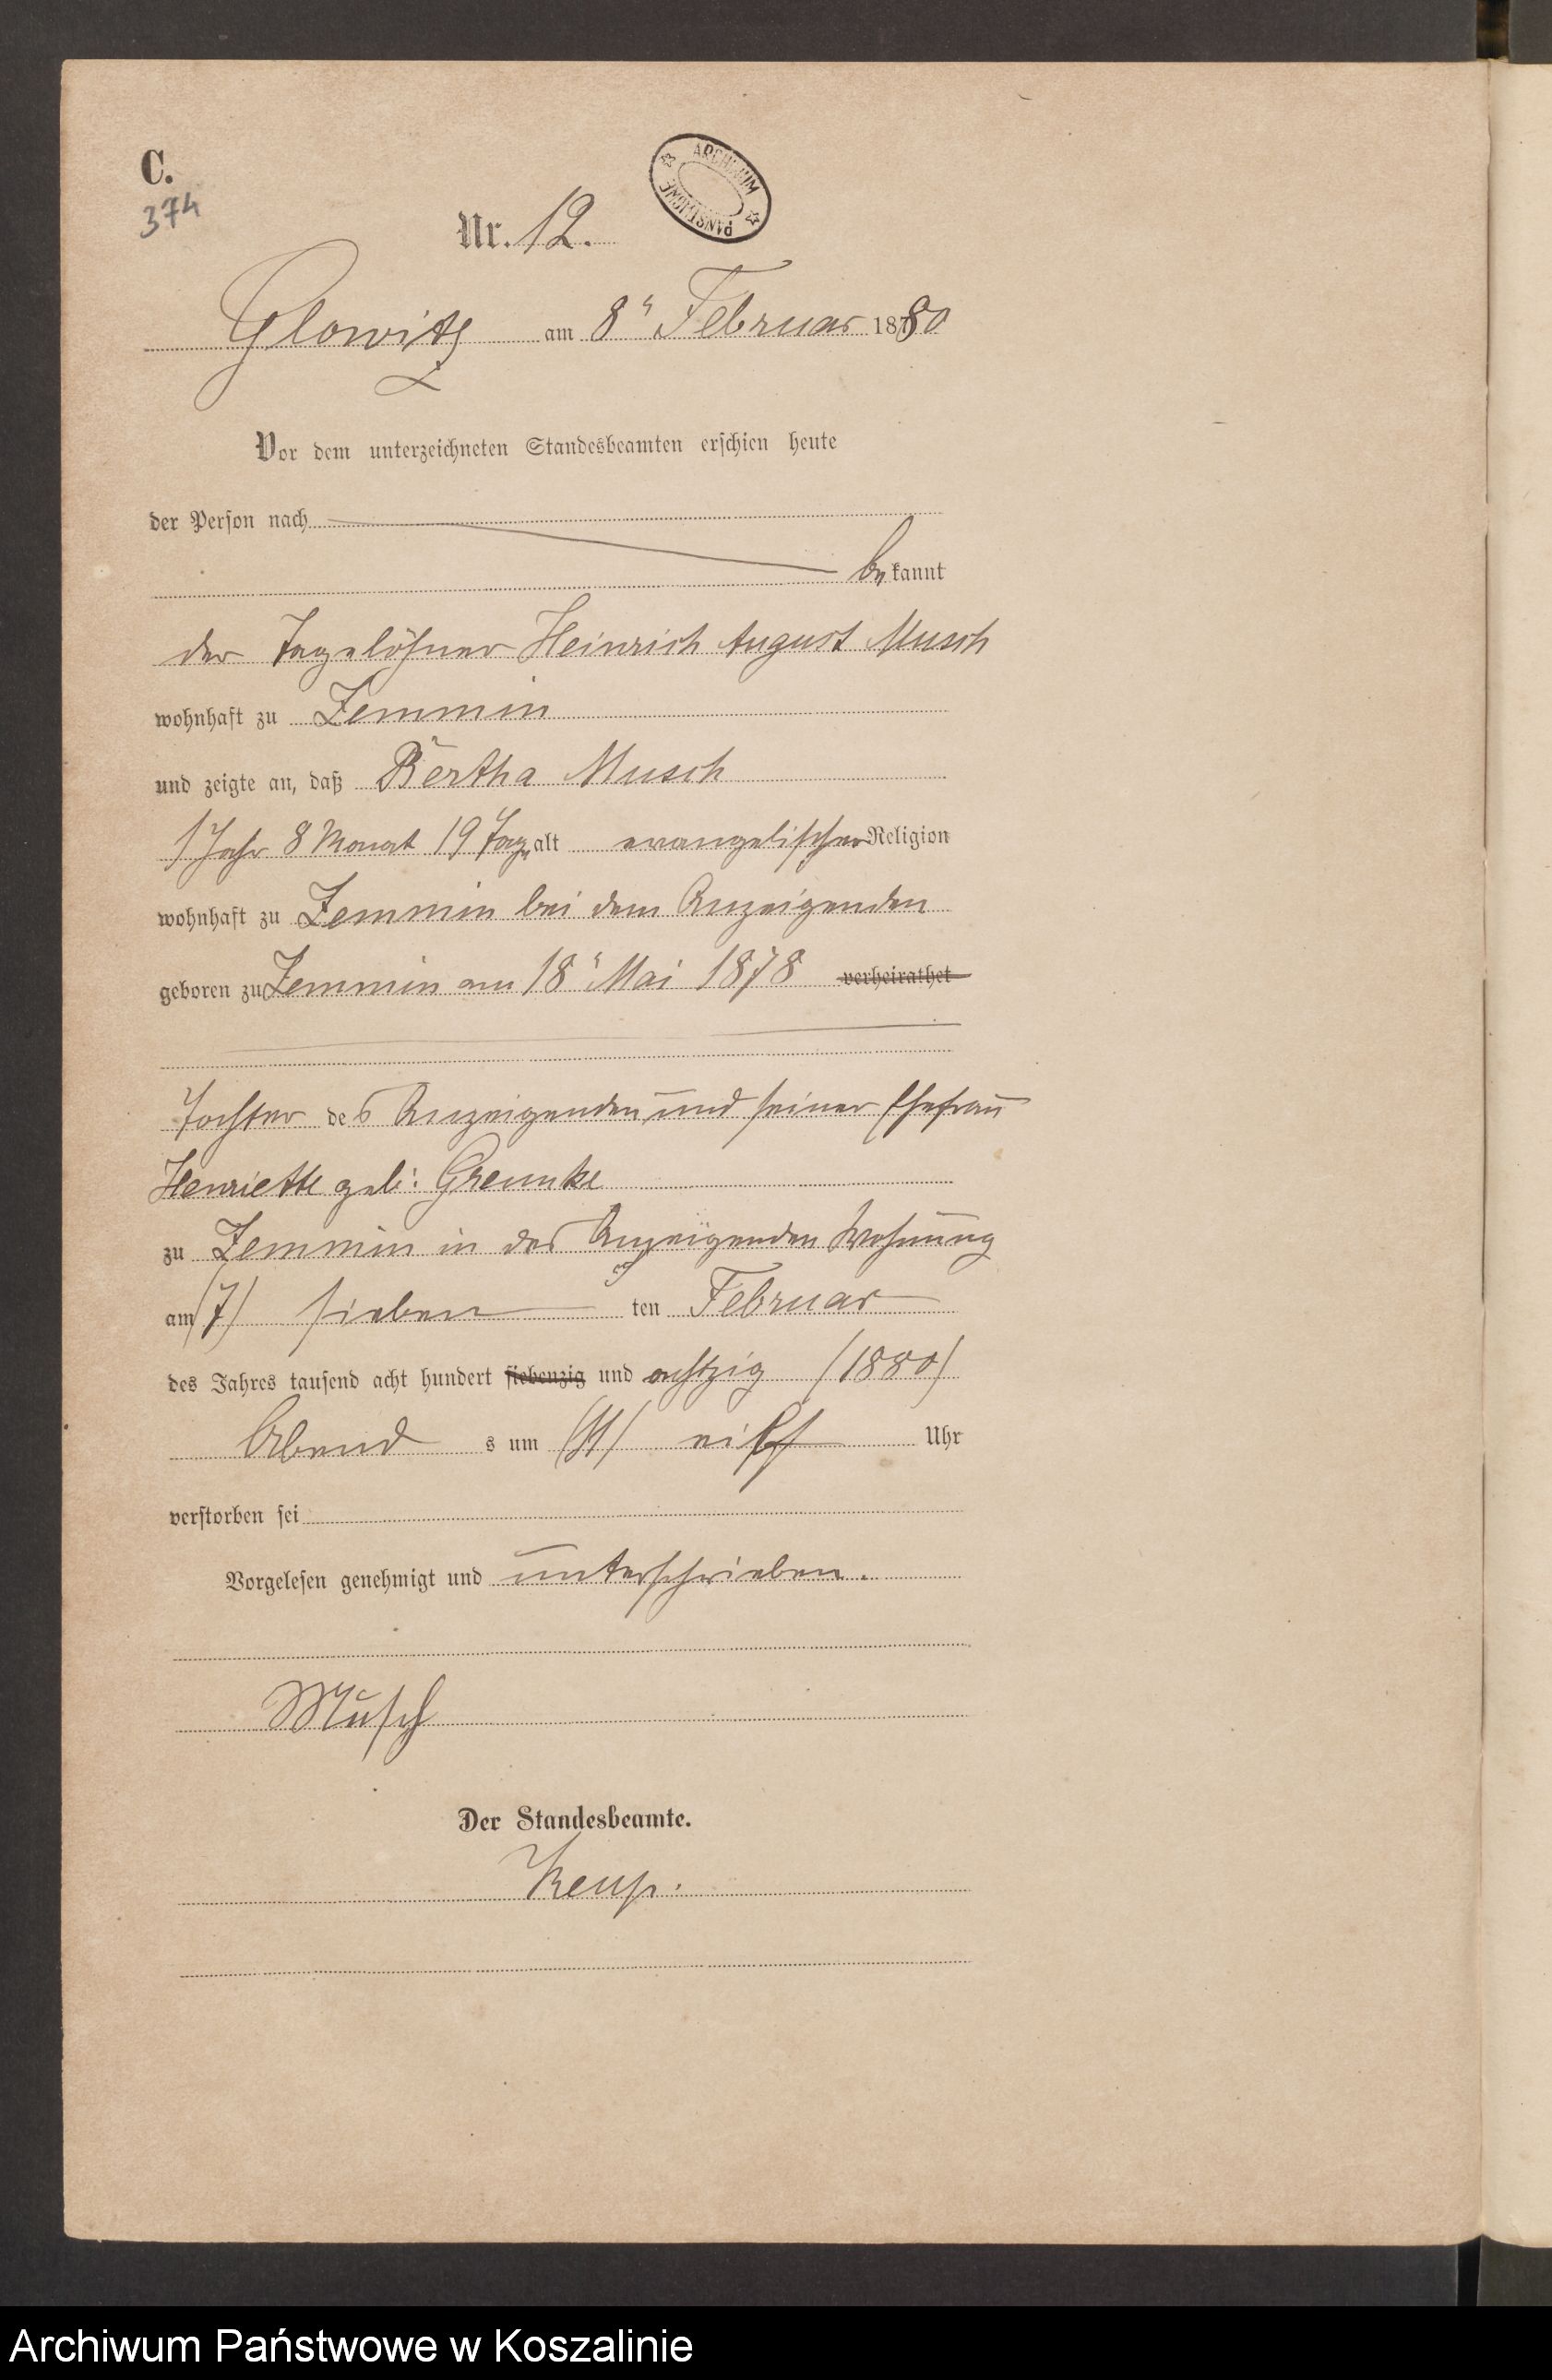 C.
374
Nr. 12.
ARCHIWUM PAŃSTWOWE
Glowitz am 8ᵗ Februar 1880
Vor dem unterzeichneten Standesbeamten erschien heute
der Person nach
bekannt
der Tagelöhner Heinrich August Musch
wohnhaft zu Zemmin
und zeigte an, daß Bertha Musch
1 Jahr 8 Monat 19 Tage alt evangelischer Religion
wohnhaft zu Zemmin bei dem Anzeigenden
geboren zu Zemmin am 18ᵗ Mai 1878 verheirathet
Tochter des Anzeigenden und seiner Ehefrau
Henriette geb: Greunke
zu Zemmin in des Anzeigenden Wohnung
am (7) sieben ten Februar
des Jahres tausend acht hundert siebenzig und achtzig (1880)
Abend s um (11) eilf Uhr
verstorben sei
Vorgelesen genehmigt und unterschrieben.
Musch
Der Standesbeamte.
Archiwum Państwowe w Koszalinie